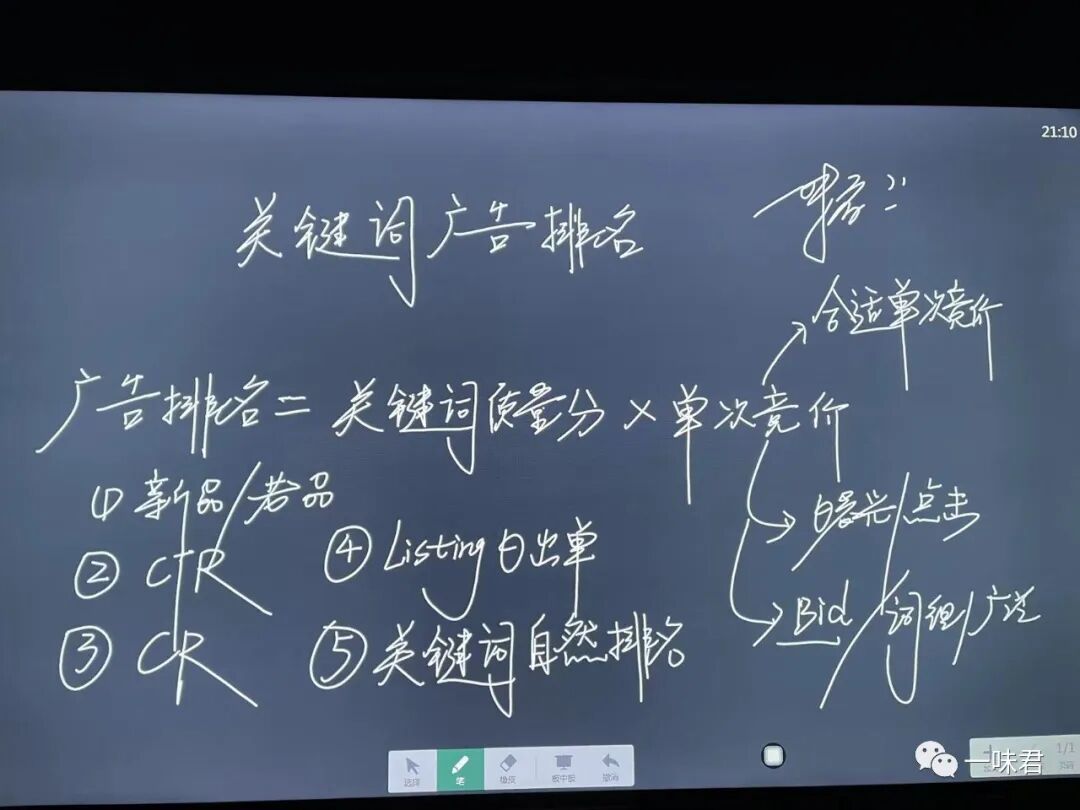 21:10
关键词广告排名
合适单次竞价
广告排名 = 关键词质量分 × 单次竞价
① 新品/老品
② CTR
③ CR
④ Listing日出单
⑤ 关键词自然排名
曝光/点击
Bid/词组/广泛
选择
笔
橡皮
板中板
撤消
一味君
1/1